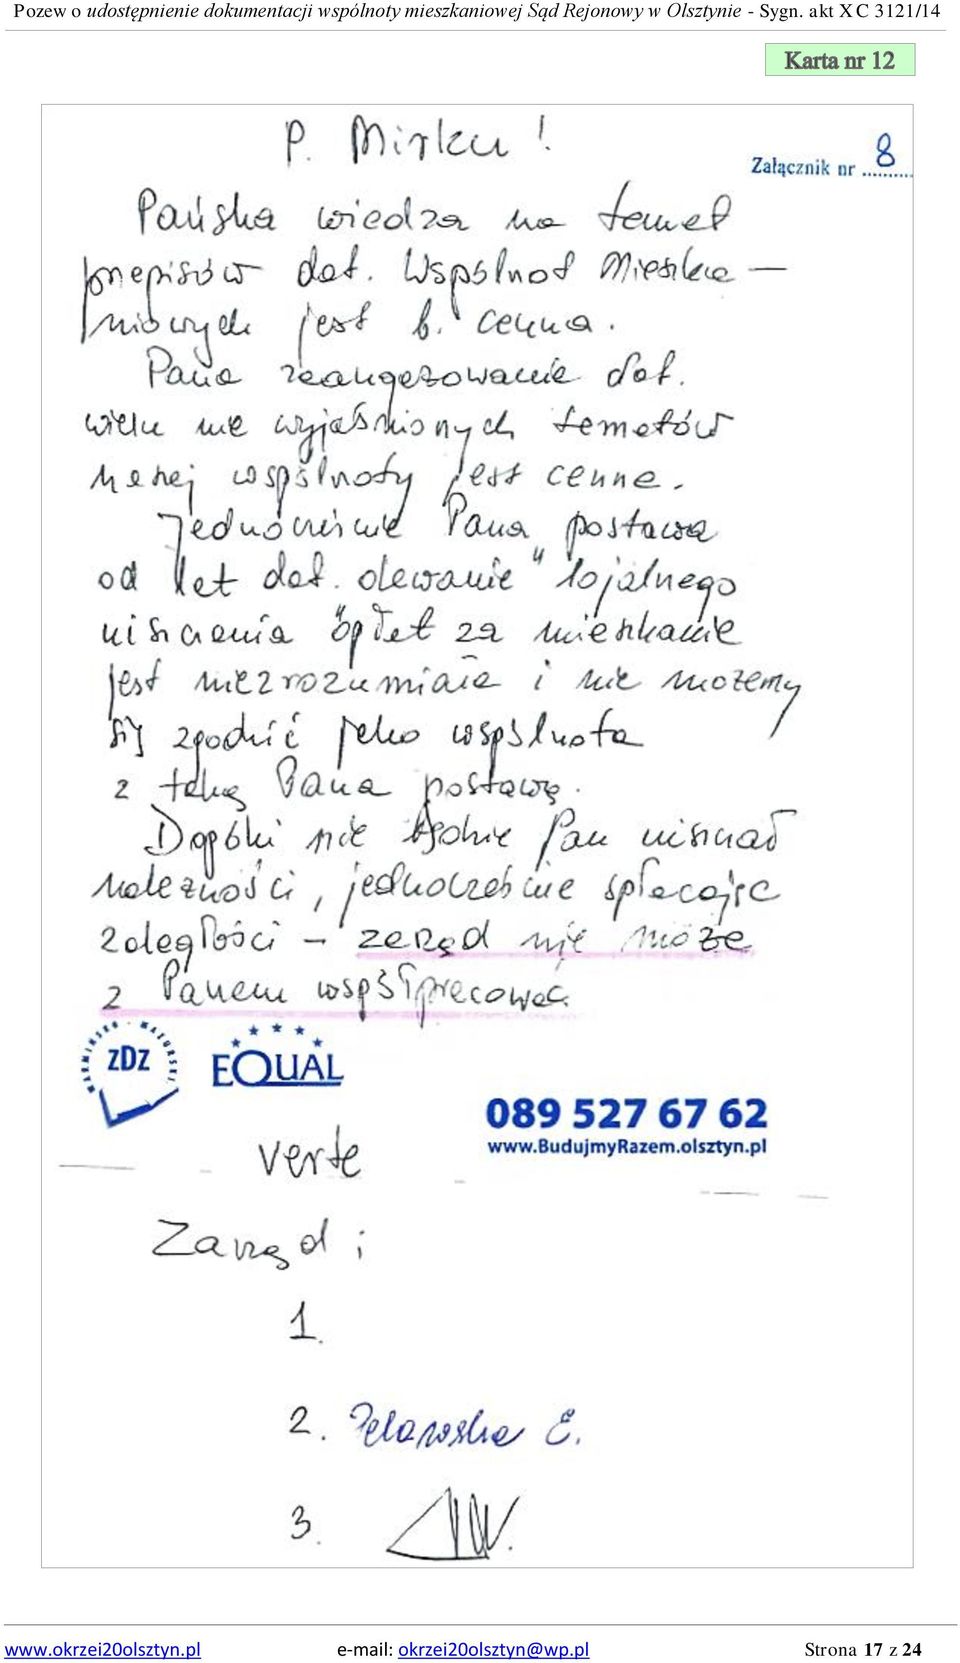 Pozew o udostępnienie dokumentacji wspólnoty mieszkaniowej Sąd Rejonowy w Olsztynie - Sygn. akt X C 3121/14
Karta nr 12
P. Mirku!
Załącznik nr 8
Pańska wiedza na temat
przepisów dot. Wspólnot Mieszka –
niowych jest b. cenna.
Pana zaangażowanie dot.
wielu nie wyjaśnionych tematów
naszej wspólnoty jest cenne.
Jednocześnie Pana postawa
od lat dot. „olewanie" lojalnego
uiszczania opłat za mieszkanie
jest niezrozumiała i nie możemy
się zgodzić jako wspólnota
z taką Pana postawą.
Dopóki nie będzie Pan uiszczał
należności, jednocześnie spłacając
zaległości – zarząd nie może
z Panem współpracować.
WARMIŃSKO MAZURSKI
ZDZ
EQUAL
089 527 67 62
www.BudujmyRazem.olsztyn.pl
verte
Zarząd:
1.
2. E.
3.
www.okrzei20olsztyn.pl e-mail: okrzei20olsztyn@wp.pl Strona 17 z 24